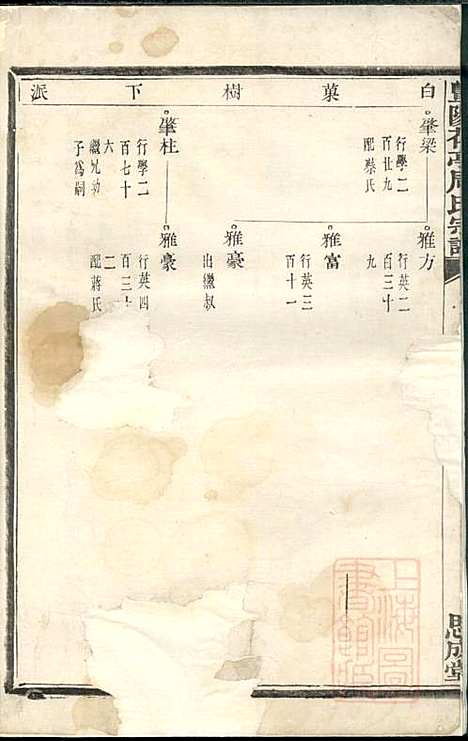 白菓樹下派
肇梁
行學二
百廿九
配蔡氏
肇柱
行學二
百七十
六
繼兄幼
子為嗣
雅方
行英二
百三十
九
雅富
行英三
百十一
雅豪
出繼叔
雅豪
行英四
百二十
二
配蔣氏
周氏宗譜
思成堂
上海圖書館藏